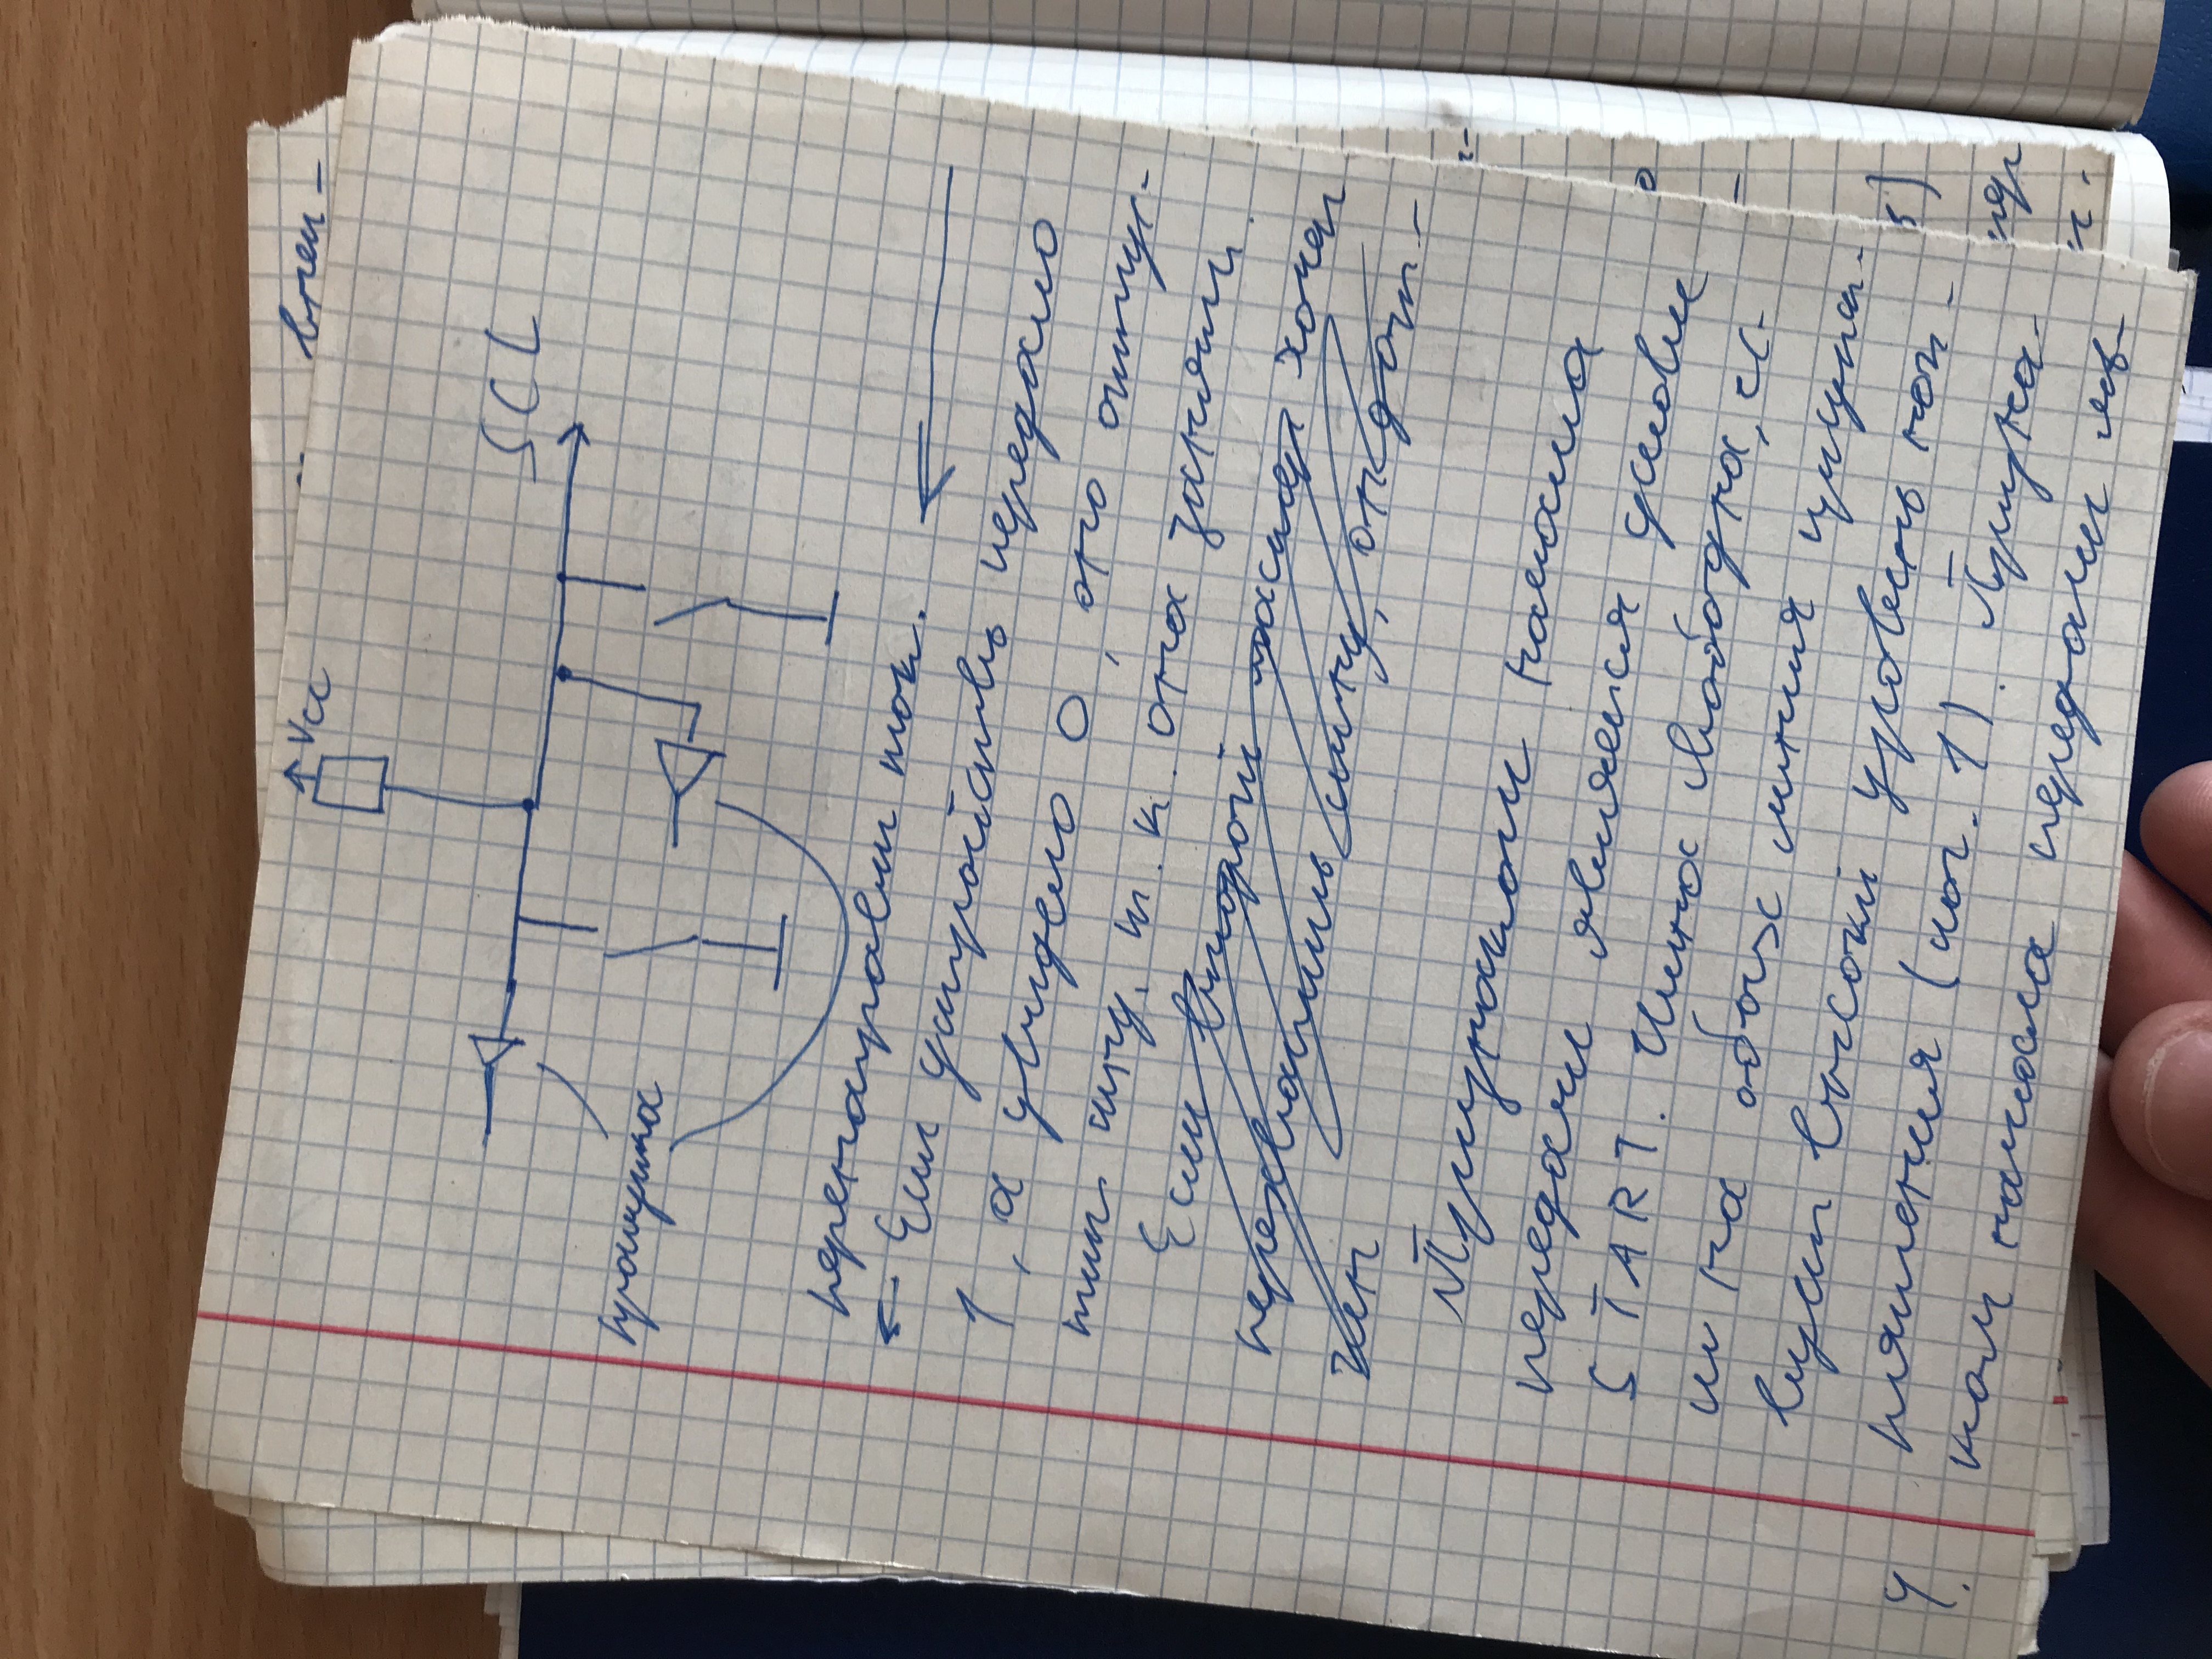 Vcc
SCL
прошупка
перенаправил ток.
← Если устройство передало
1, а увидело 0, оно отпус-
тит шину, т.к. она занята.
Если второй мастер хочет
перехватить шину, он дол-
жен
Признаком начала
передачи является условие
START. Шина свободна, ес-
ли на обоих линия присутст-
вует высокий уровень нап-
ряжения (лог. 1). Призна-
ком начала передачи яв-